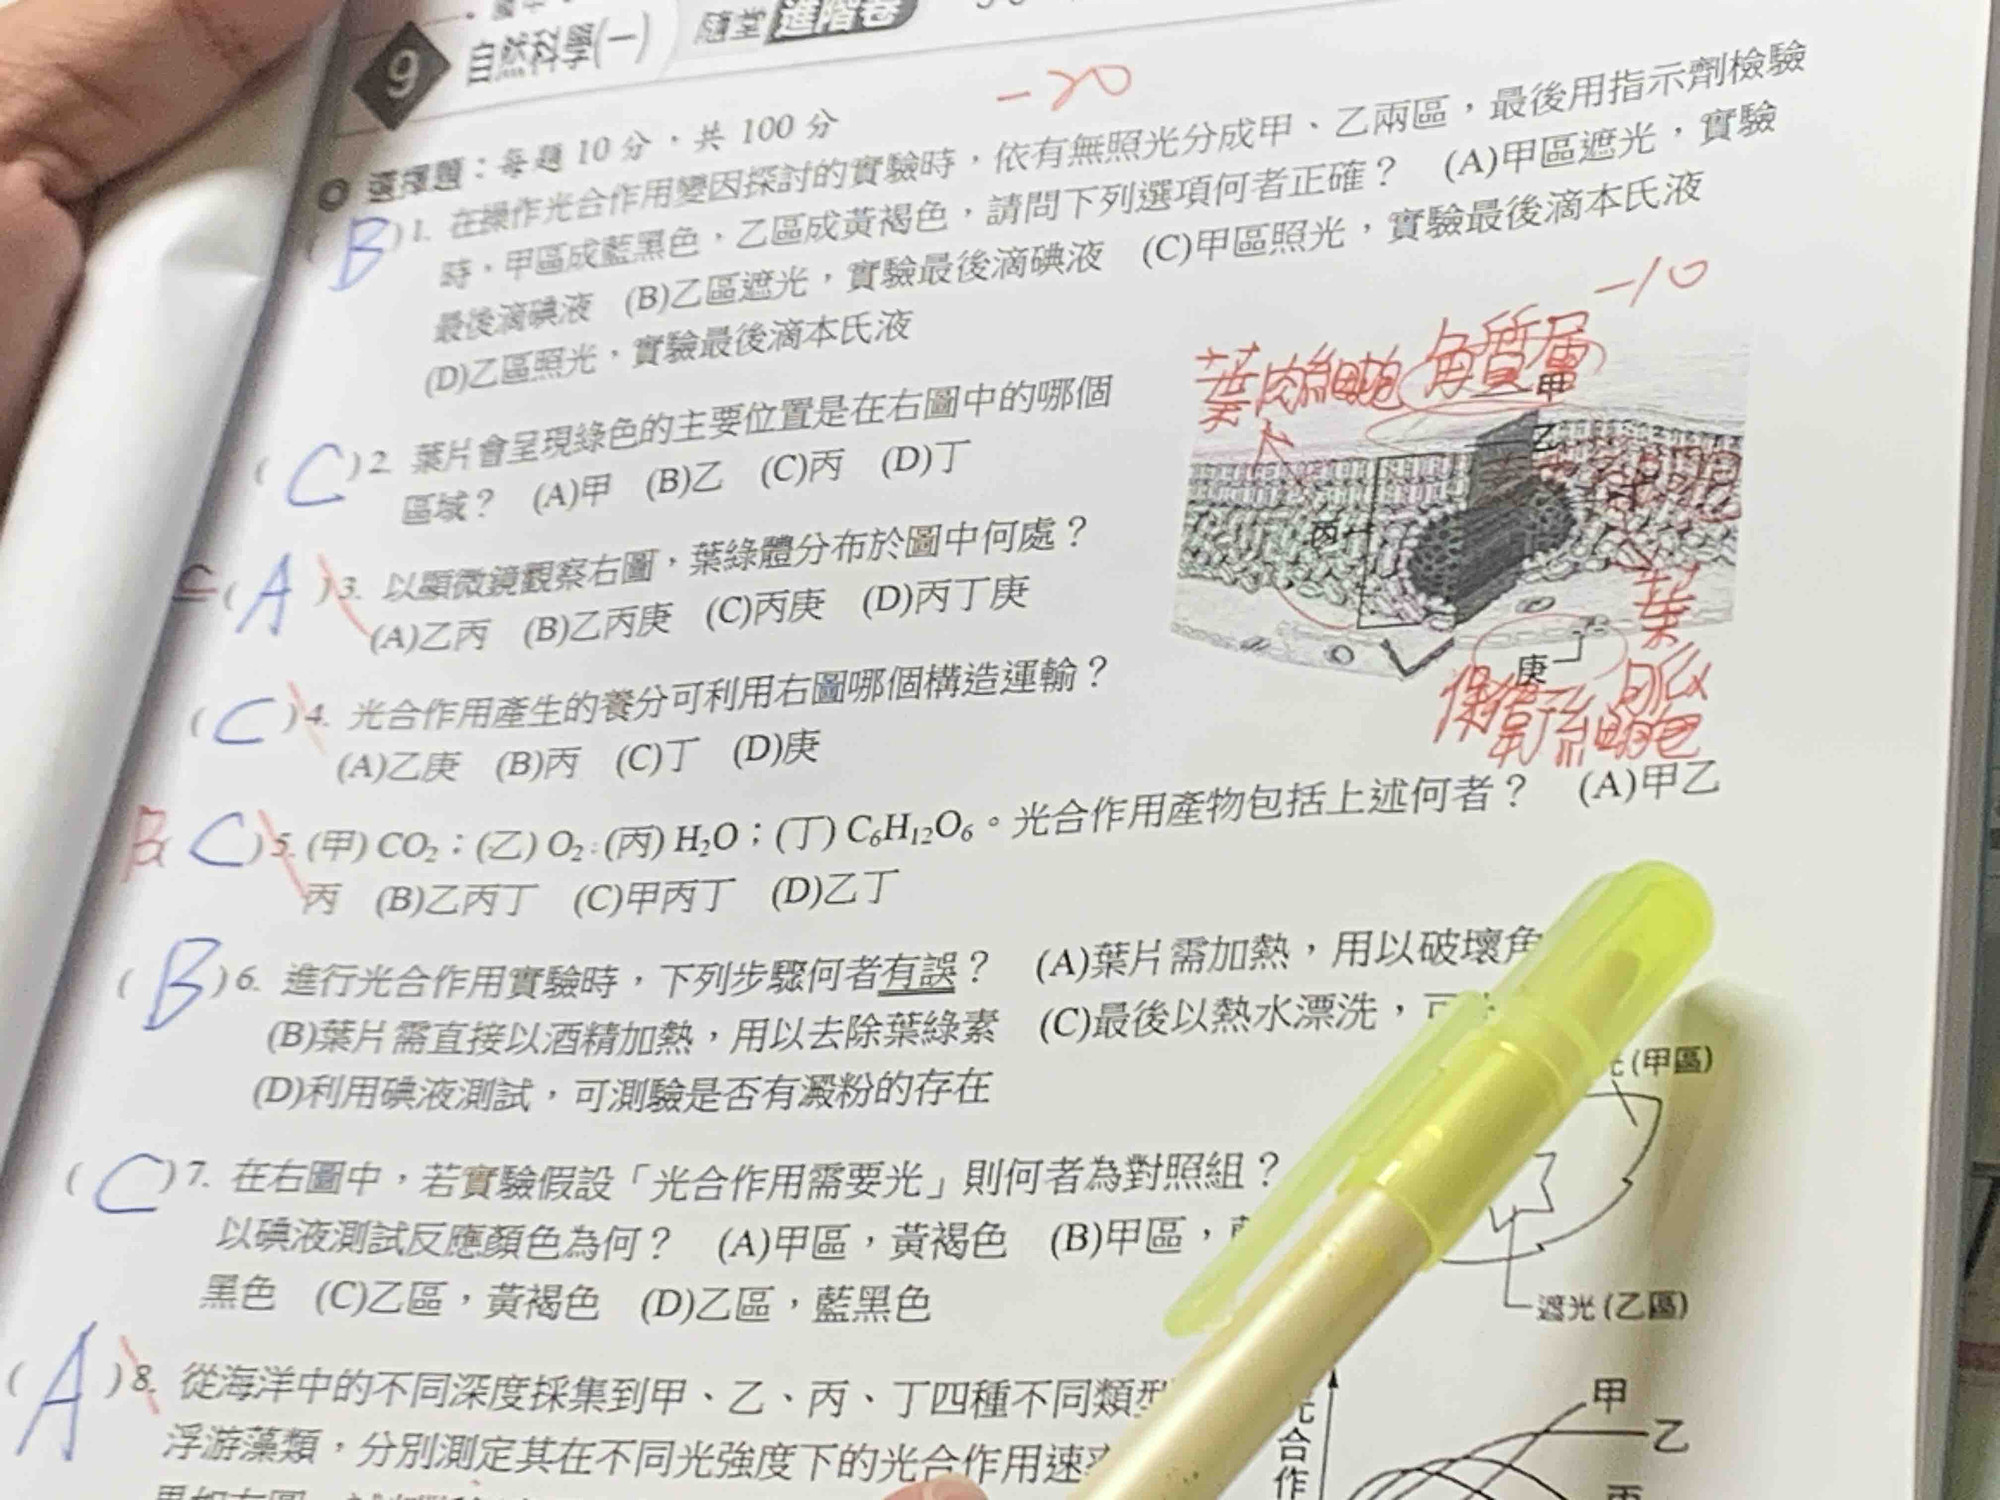 9 自然科學(一) 隨堂 進階卷
-20
選擇題：每題 10 分，共 100 分
( B ) 1. 在操作光合作用變因探討的實驗時，依有無照光分成甲、乙兩區，最後用指示劑檢驗
時，甲區成藍黑色，乙區成黃褐色，請問下列選項何者正確？ (A)甲區遮光，實驗
最後滴碘液 (B)乙區遮光，實驗最後滴碘液 (C)甲區照光，實驗最後滴本氏液
(D)乙區照光，實驗最後滴本氏液
-10
葉肉細胞 角質層
甲
乙
丙
葉脈
庚
保衛細胞
( C ) 2. 葉片會呈現綠色的主要位置是在右圖中的哪個
區域？ (A)甲 (B)乙 (C)丙 (D)丁
C ( A ) 3. 以顯微鏡觀察右圖，葉綠體分布於圖中何處？
(A)乙丙 (B)乙丙庚 (C)丙庚 (D)丙丁庚
( C ) 4. 光合作用產生的養分可利用右圖哪個構造運輸？
(A)乙庚 (B)丙 (C)丁 (D)庚
B ( C ) 5. (甲) CO₂；(乙) O₂；(丙) H₂O；(丁) C₆H₁₂O₆。光合作用產物包括上述何者？ (A)甲乙
丙 (B)乙丙丁 (C)甲丙丁 (D)乙丁
( B ) 6. 進行光合作用實驗時，下列步驟何者有誤？ (A)葉片需加熱，用以破壞角
(B)葉片需直接以酒精加熱，用以去除葉綠素 (C)最後以熱水漂洗，
(D)利用碘液測試，可測驗是否有澱粉的存在
(甲區)
( C ) 7. 在右圖中，若實驗假設「光合作用需要光」則何者為對照組？
以碘液測試反應顏色為何？ (A)甲區，黃褐色 (B)甲區，
黑色 (C)乙區，黃褐色 (D)乙區，藍黑色
遮光(乙區)
( A ) 8. 從海洋中的不同深度採集到甲、乙、丙、丁四種不同類型
浮游藻類，分別測定其在不同光強度下的光合作用速率
甲
乙
丙
光合作